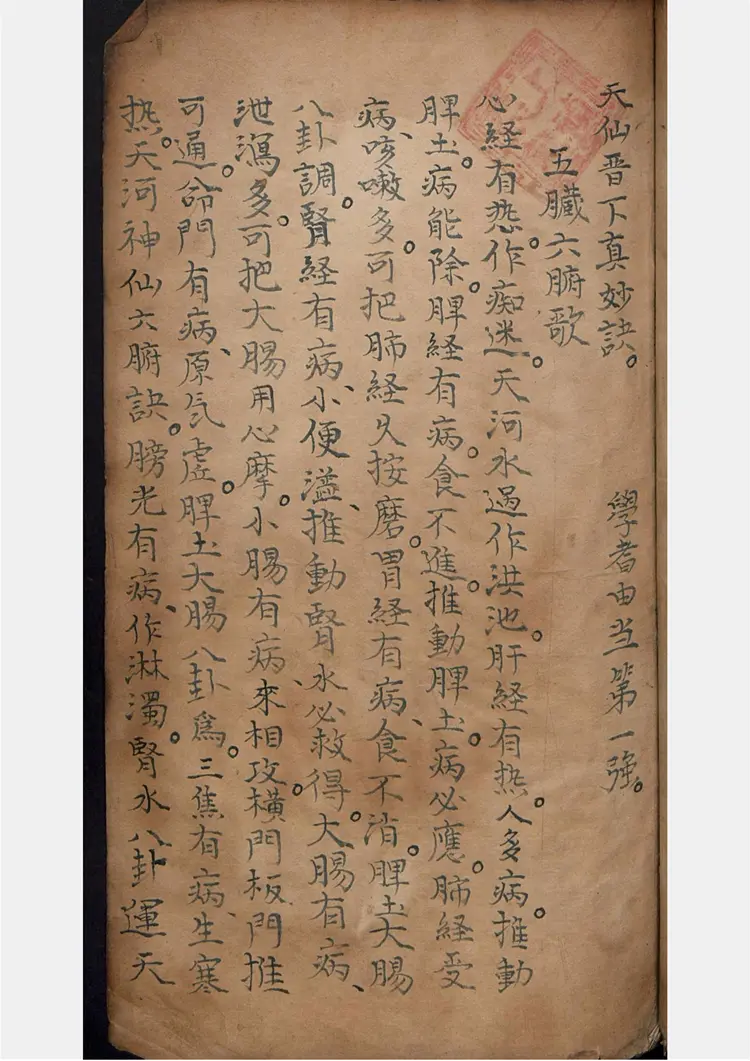 天仙晋下真妙訣。學者由当第一強。
五臟六腑歌
心経有热。作痴迷。天河水過作洪池。肝経有热。人多病。推動
脾土。病能除。脾経有病。食不進。推動脾土。病必應。肺経受
病、咳嗽多。可把肺経久按磨。胃経有病、食不消。脾土大腸
八卦調。腎経有病、小便溢、推動腎水必救得。大腸有病、
泄瀉多。可把大腸用心摩。小腸有病、來相攻。横門板門推
可通。命門有病、原氕虚。脾土大腸八卦為。三焦有病、生寒
热。天河神仙六腑訣。膀光有病、作淋濁。腎水八卦運天